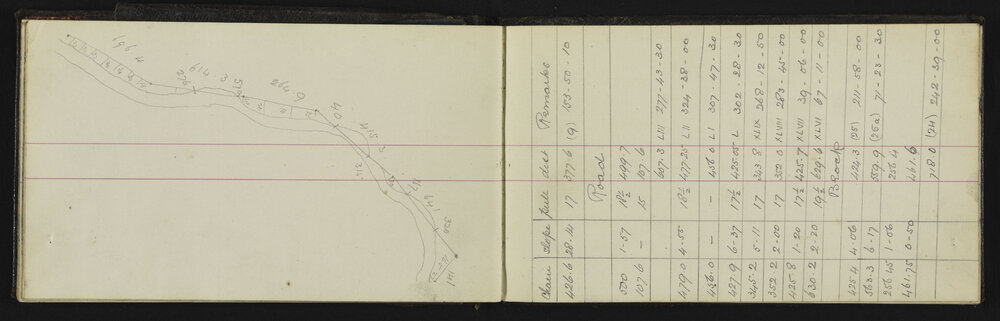 Chain Slope full dist Remarks
426.6 28.41 17 377.6 (9) 153-50-10
Road
500 1-57 18½ 499.7
107.6 - 15 107.6
607.3 LIII 277-43-30
479.0 4.55 18½ 477.25 LII 324-38-00
456.0 - - 456.0 LI 307-47-30
427.9 6-37 17½ 425.05 L 302-28-30
345.2 5-11 17 343.8 XLIX 268-12-50
352.2 2-00 17 352.0 XLVIII 283-45-00
425.8 1-20 17½ 425.7 XLVII 39-06-00
630.2 2-20 19½ 629.6 XLVI 67-11-00
Block
425.4 4-06 424.3 (25) 211-58-00
563.3 6-17 559.9 (25a) 71-23-30
256.45 1-06 256.4
461.75 0-50 461.6
718.0 (24) 242-39-00
696.4
614
3
264